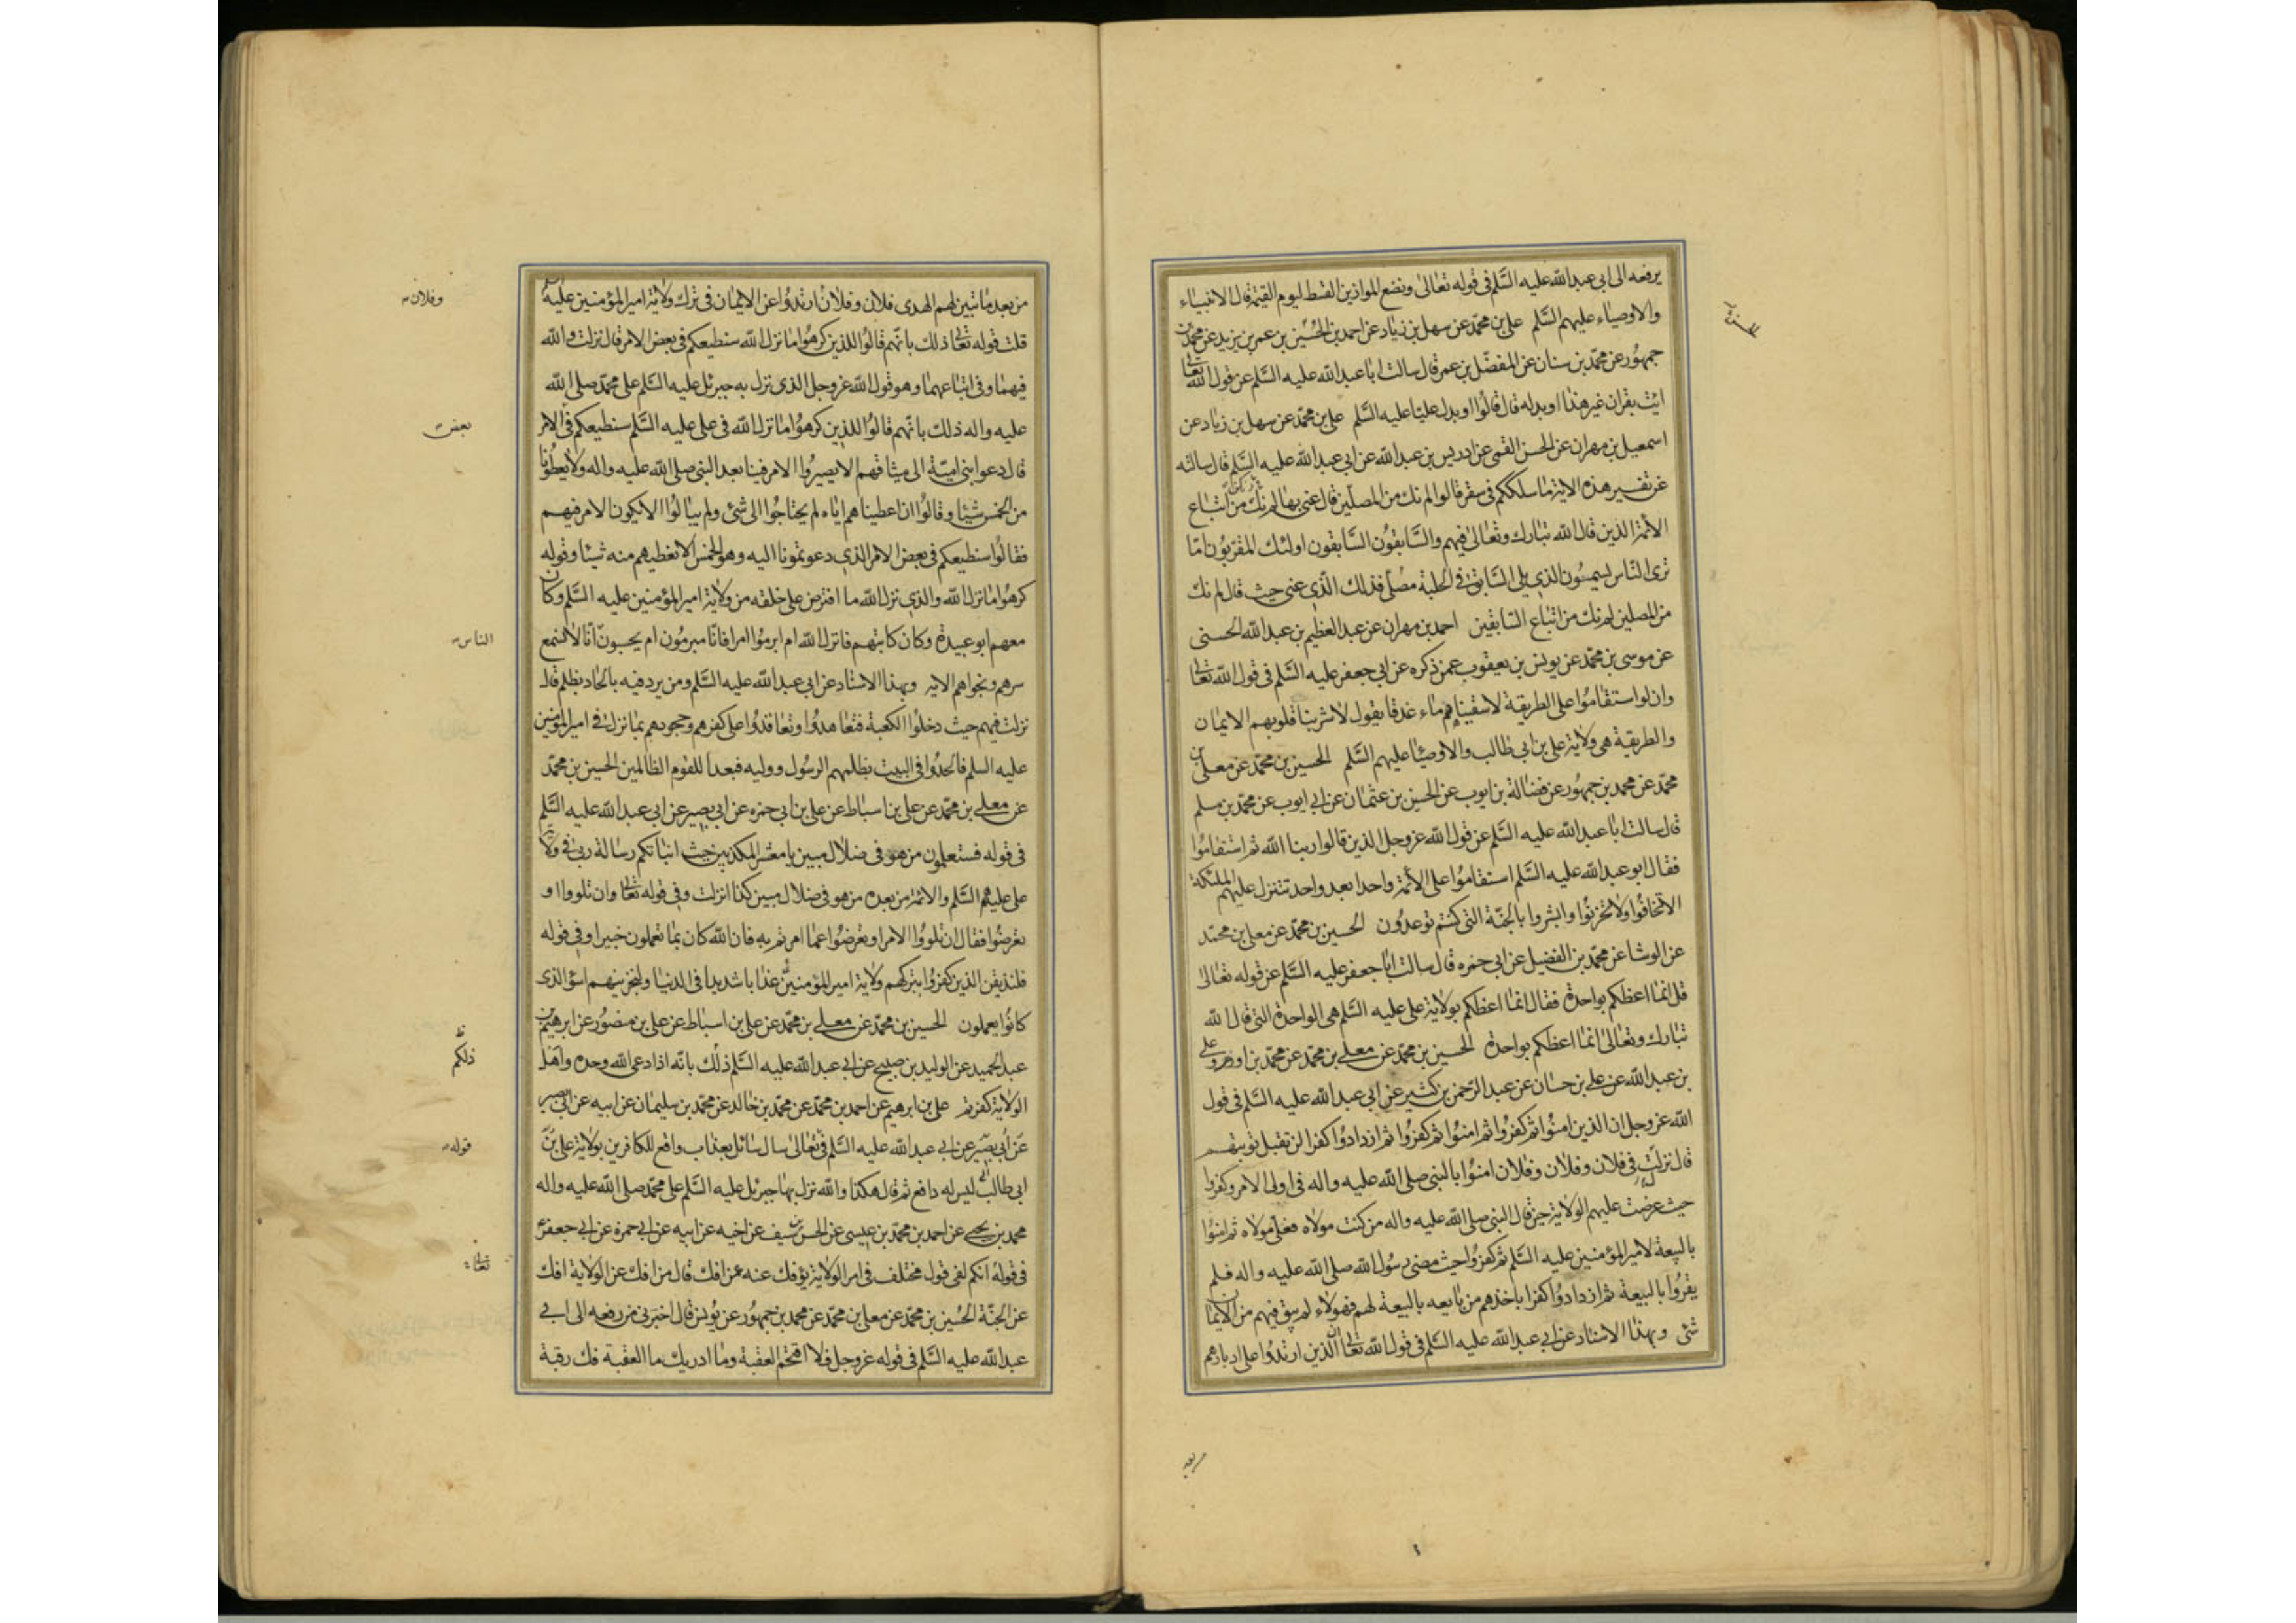 يرفعه الى ابى عبدالله عليه السَّلم فى قوله تعالىٰ ونضع الموازين القسط ليوم القيٰمة قال الانبياء
والاوصياء عليهم السَّلم على بن محمّد عن سهل بن زياد عن احمد بن الحُسَين بن عمر بن يزيد عن محمد بن
جمهُور عن محمّد بن سنان عن المفضّل بن عمر قال سالت ابا عبدالله عليه السَّلم عن قول الله تعالىٰ
ائت بقران غير هذا او بدله قال قالوُا او بدل عليًا عليه السَّلم على بن محمّد عن سهل بن زياد عن
اسمعيل بن مهران عن الحسن القمى عن ادريس بن عبدالله عن ابى عبدالله عليه السَّلم قال سالته
عن تفسير هذه الاية ما سلككم فى سقر قالوا لم نك من المصلّين قال عنى بها لم نك من اتباع
الائمة الذين قال الله تبارك وتعالىٰ فيهم والسَّابقوُن السَّابقون اولئك المقرّبوُن امّا
ترى النّاس يسمّون الذى يلى السَّابق فى الحلبة مصُلّى فذلك الّذى عنى حيث قال لم نك
من المصلين لم نك من اتباع السّابقين احمد بن مهران عن عبد العظيم بن عبد الله الحسنى
عن موسى بن محمّد عن يونس بن يعقوب عمن ذكره عن ابى جعفر عليه السَّلم فى قول الله تعالىٰ
وان لو استقاموُا على الطريقة لاسقيناهم ماء غدقا يقول لاشربنا قلوبهم الايمان
والطريقة هى ولاية على بن ابى طالب والاوصيٓا عليهم السَّلم الحسين بن محمّد عن معلى بن
محمّد عن محمد بن جمهُور عن فضالة بن ايوب عن الحسين بن عثمان عن ابى ايوب عن محمّد بن مسلم
قال سالت ابا عبدالله عليه السَّلم عن قول الله عز وجل الذين قالوا ربنا الله ثم استقاموُا
فقال ابو عبدالله عليه السَّلم استقاموُا على الائمة واحدا بعد واحد تتنزل عليهم الملئكة
الا تخافوُا ولا تحزنوُا وابشروا بالجنّة التى كنتم توعدُون الحسين بن محمّد عن معلى بن محمّد
عن الوشا عن محمّد بن الفضيل عن ابى حمزه قال سالت ابا جعفر عليه السَّلم عن قوله تعالىٰ
قل انما اعظكم بواحدة فقال انما اعظكم بولاية على عليه السَّلم هى الواحدة التى قال الله
تبارك وتعالىٰ انما اعظكم بواحدة الحسين بن محمّد عن معلى بن محمّد عن محمّد بن اورمة وعلى
بن عبدالله عن على بن حسان عن عبد الرّحمن بن كثير عن ابى عبدالله عليه السَّلم فى قول
الله عز وجل ان الذين امنوُا ثم كفروُا ثم امنوُا ثم كفروُا ثم ازدادوُا كفرا لن تقبل توبتهم
قال نزلت فى فلان وفلان وفلان امنوُا بالنبى صلى الله عليه واله فى اول الامر وكفروا
حيث عرضت عليهم الولاية حين قال النبى صلى الله عليه واله من كنت مولاه فعلى مولاه ثم امنوُا
بالبيعة لامير المؤمنين عليه السَّلم ثم كفروُا حيث مضى رسوُل الله صلى الله عليه واله فلم
يقرّوُا بالبيعة ثم ازدادوُا كفرا باخذهم من بايعه بالبيعة لهم فهولاء لم يبق فيهم من الايمان
شئ وبهذا الاسناد عن ابى عبدالله عليه السَّلم فى قول الله تعالىٰ ان الذين ارتدُوا على ادبارهم
من بعد
من بعد ما تبين لهم الهدى فلان وفلان ارتدُوا عن الايمان فى ترك ولاية امير المؤمنين عليه
وفلان
قلت قوله تعالىٰ ذلك بانّهم قالوُا للذين كرهُوا ما نزل الله سنطيعكم فى بعض الامر قال نزلت والله
فيهما وفى اتباعهما وهو قول الله عز وجل الذى نزل به جبرئل عليه السَّلم على محمّد صلى الله
عليه واله ذلك بانّهم قالوُا للذين كرهوُا ما نزل الله فى على عليه السَّلم سنطيعكم فى الامر
بعض
قال دعوا بنى اميّة الى ميثاقهم الا يصيروُا الامر فينا بعد النبى صلى الله عليه واله ولا يعطُونا
من الخمس شيئا وقالوُا ان اعطيناهم اياه لم يحتاجوُا الى شئ ولم يبالوُا الا يكون الامر فيهم
فقالوُا سنطيعكم فى بعض الامر الذى دعوتمونا اليه وهو الخمس الا نعطيهم منه شيئا وقوله
كرهوُا ما نزل الله والذى نزل الله ما افترض على خلقه من ولاية امير المؤمنين عليه السَّلم وكان
معهم ابو عبيدة وكان كاتبهم فانزل الله ام ابرموُا امرا فانّا مبرمُون ام يحسبون انّا لا نسمع
الناس
سرهم ونجواهم الايه وبهذا الاسناد عن ابى عبدالله عليه السَّلم ومن يرد فيه بالحاد بظلم قال
نزلت فيهم حيث دخلوُا الكعبة فتعاهدُوا وتعاقدُوا على كفرهم وجحودهم بما نزل فى امير المؤمنين
عليه السلم فالحدُوا فى البيت بظلمهم الرسُول ووليه فبعدا للقوم الظالمين الحسين بن محمّد
عن معلى بن محمّد عن على بن اسباط عن على بن ابى حمزه عن ابى بصير عن ابى عبدالله عليه السَّلم
فى قوله فستعلمون من هو فى ضلال مبين يا معشر المكذبين حيث انباتكم رسالة ربى فى ولاية
على عليهم السَّلم والائمة من بعده من هو فى ضلال مبين كذا انزلت وفى قوله تعالىٰ وان تلووا او
تعرضوُا فقال ان تلووُا الامر او تعرضوُا عما امرتم به فان الله كان بما تعملون خبيرا وفى قوله
فلنذيقن الذين كفروُا بتركهم ولاية امير المؤمنين عذابا شديدا فى الدنيا ولنجزينهم اسؤ الذى
كانوُا يعملون الحسين بن محمّد عن معلى بن محمّد عن على بن اسباط عن على بن منصُور عن ابرهيم بن
عبد الحميد عن الوليد بن صبيح عن ابى عبدالله عليه السَّلم ذلك بانه اذا دعى الله وحده واهل
ذلكم
الولاية كفرتم على بن ابرهيم عن احمد بن محمّد عن محمّد بن خالد عن محمّد بن سليمان عن ابيه عن ابى بصير
عن ابى بصير عن ابى عبدالله عليه السَّلم فى تعالىٰ سال سائل بعذاب واقع للكافرين بولاية على بن
قوله
ابى طالب ليس له دافع ثم قال هكذا والله نزل بها جبرئل عليه السَّلم على محمّد صلى الله عليه واله
محمد بن يحيى عن احمد بن محمّد بن عيسى عن الحسن بن سيف عن اخيه عن ابيه عن ابى حمزة عن ابى جعفر
فى قوله انكم لفى قول مختلف فى امر الولاية يؤفك عنه من افك قال من افك عن الولاية افك
تعالىٰ
عن الجنّة الحُسين بن محمّد عن معلى بن محمّد عن محمد بن جمهُور عن يُونس قال اخبرنى من رفعه الى ابى
عبدالله عليه السَّلم فى قوله عز وجل فلا اقتحم العقبة وما ادريك ما العقبة فك رقبة